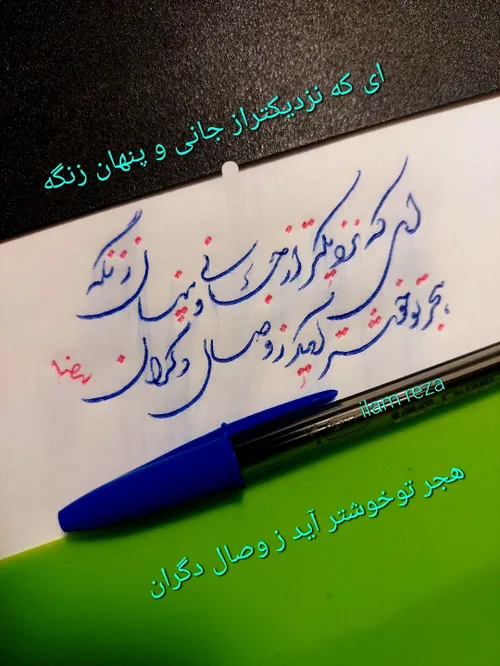 ای که نزدیکتراز جانی و پنهان زنگه
ای که نزدیکتر از جانی و پنهان ز نگه
هجر تو خوشتر آید ز وصال دگران
رضا
ilam reza
هجر توخوشتر آید ز وصال دگران